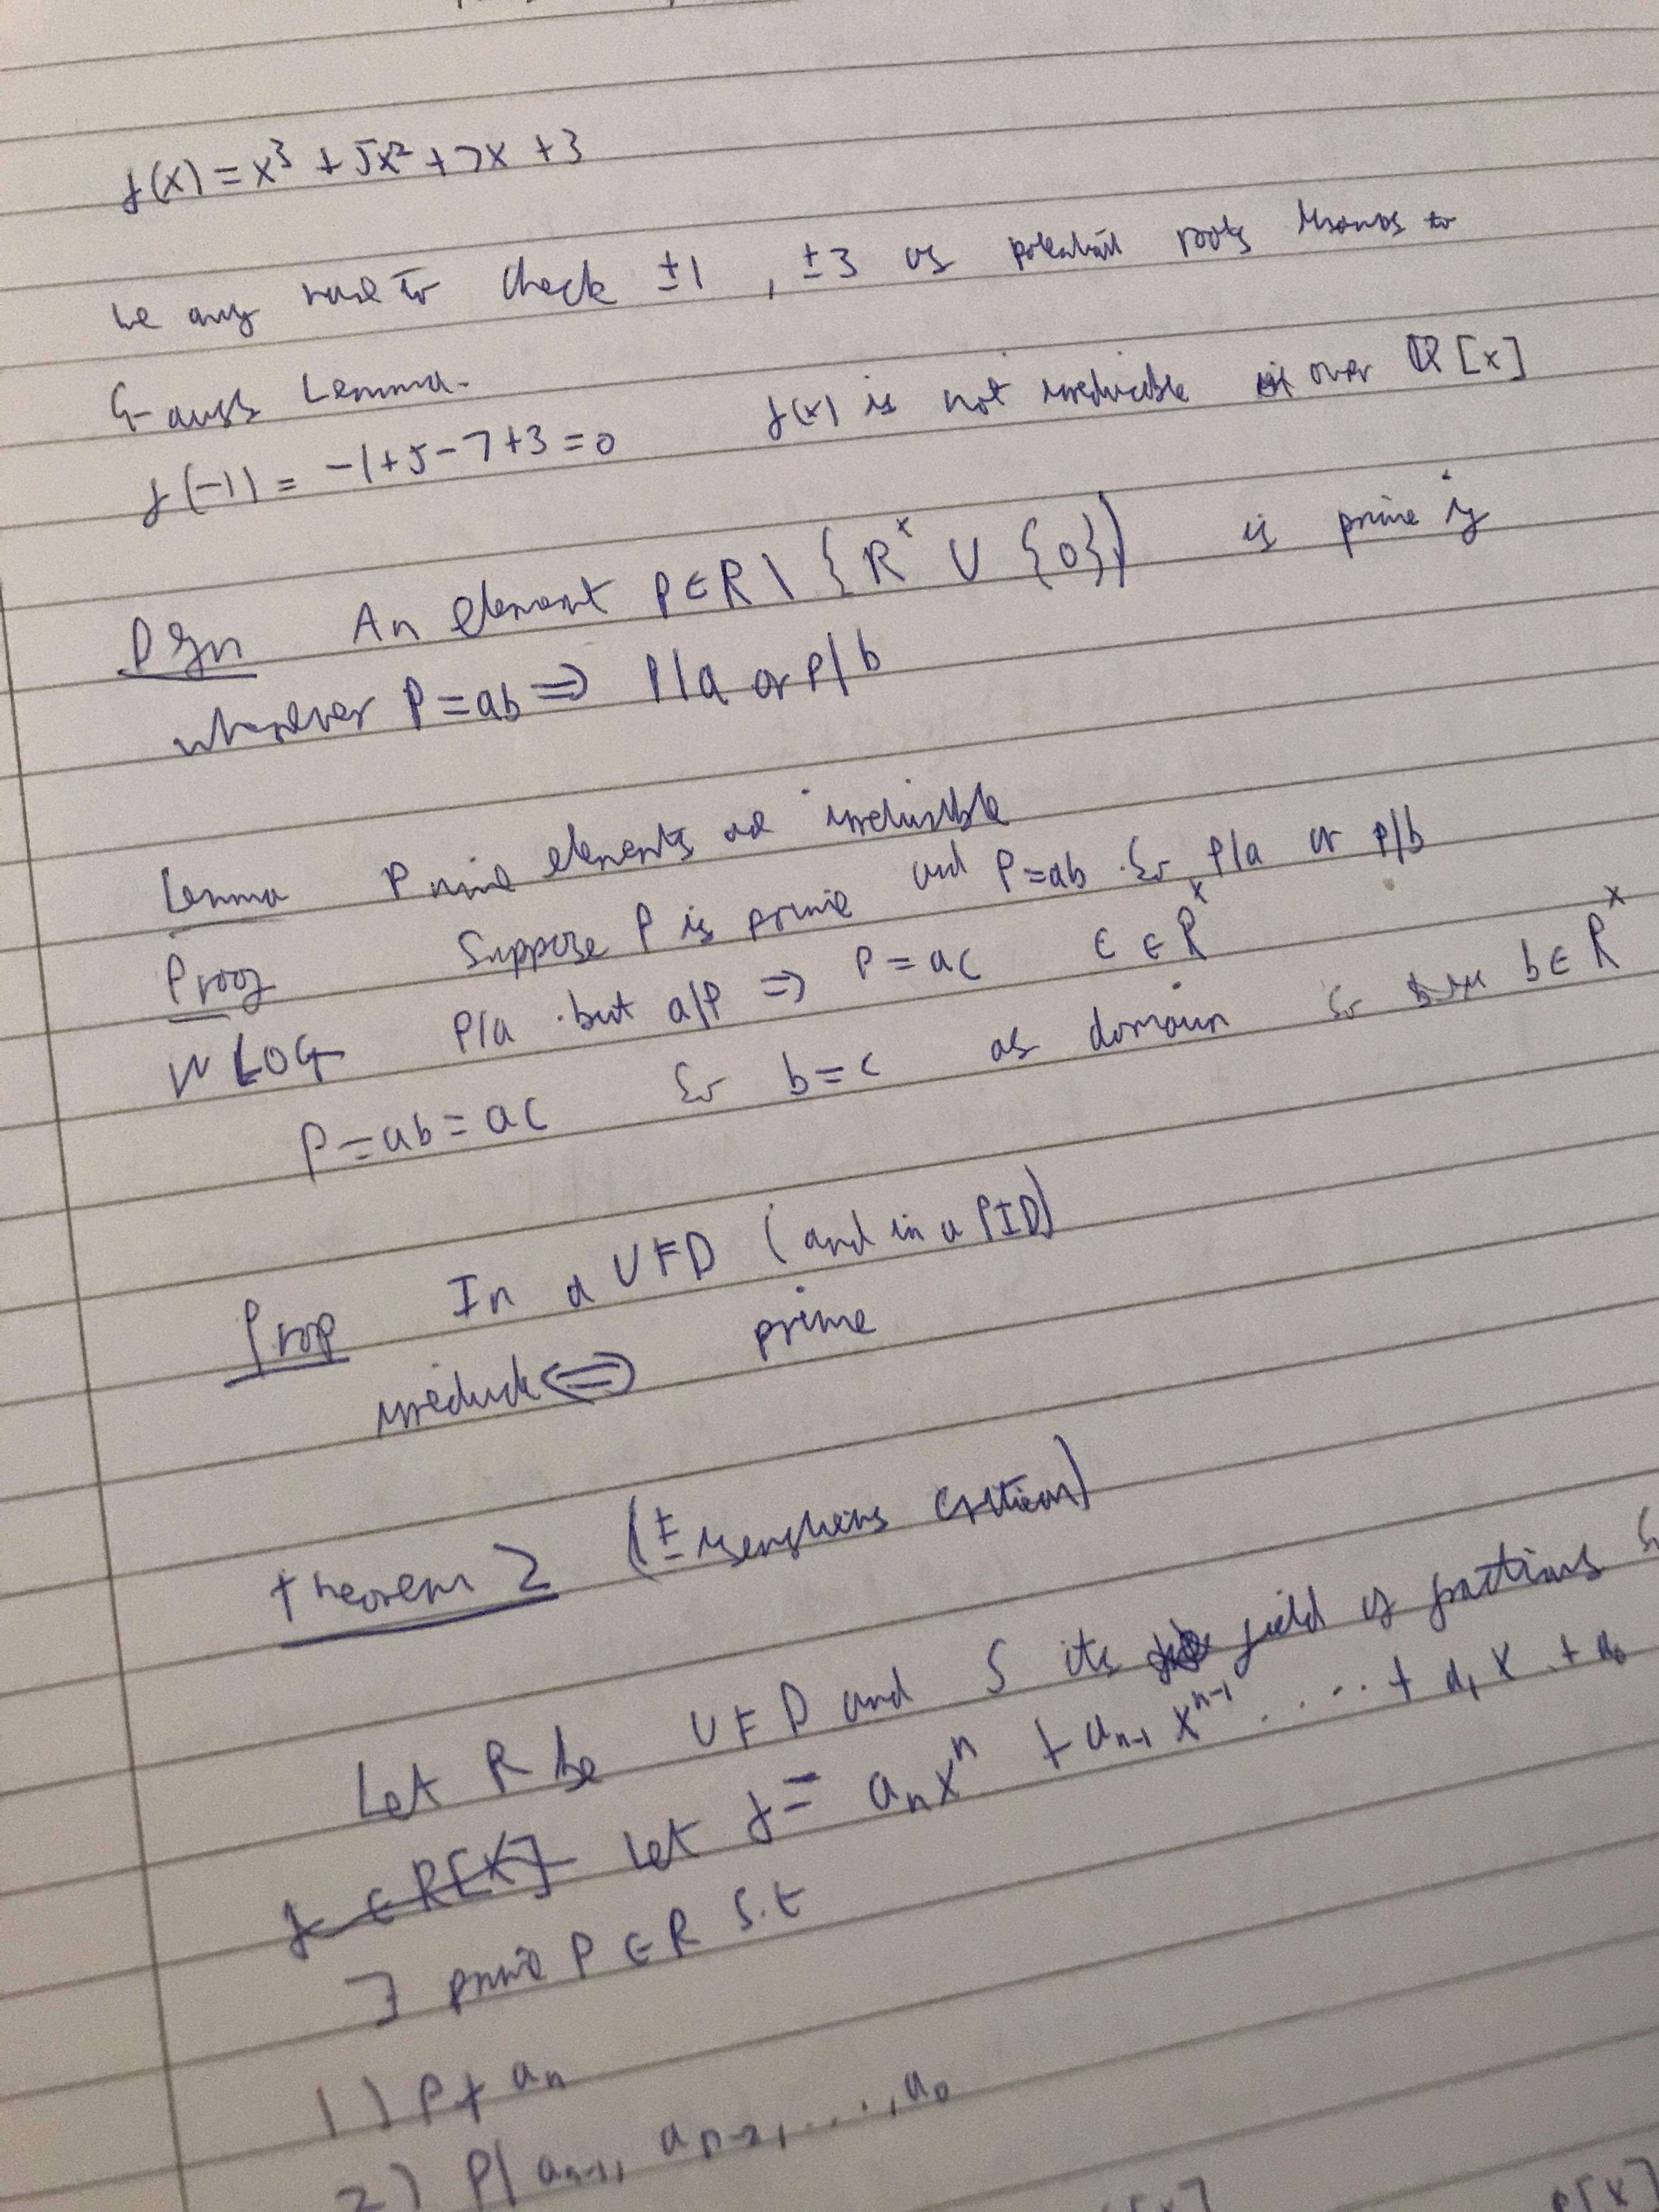 f(x) = x³ + 5x² + 7x + 3
we only have to check ±1 , ±3 as potential roots thanks to
Gauss Lemma.
f(-1) = -1+5-7+3=0 f(x) is not irreducible over ℚ[x]
Defn An element P∈R \ {R^× ∪ {0}) is prime if
whenever P=ab ⇒ P|a or P|b
Lemma Prime elements are irreducible
Proof Suppose P is prime and P=ab. So P|a or P|b
WLOG P|a but a|P ⇒ P=ac c∈R^×
P=ab=ac So b=c as domain so b∈R^×
Prop In a UFD (and in a PID)
irreduc ⇔ prime
Theorem 2 (Eisensteins Criterion)
Let R be UFD and S its field of fractions
f∈R[X] Let f= aₙxⁿ + aₙ₋₁xⁿ⁻¹ .... + a₁x + a₀
∃ prime P∈R s.t
1) P∤aₙ
2) P|aₙ₋₁, aₙ₋₂, ..., a₀